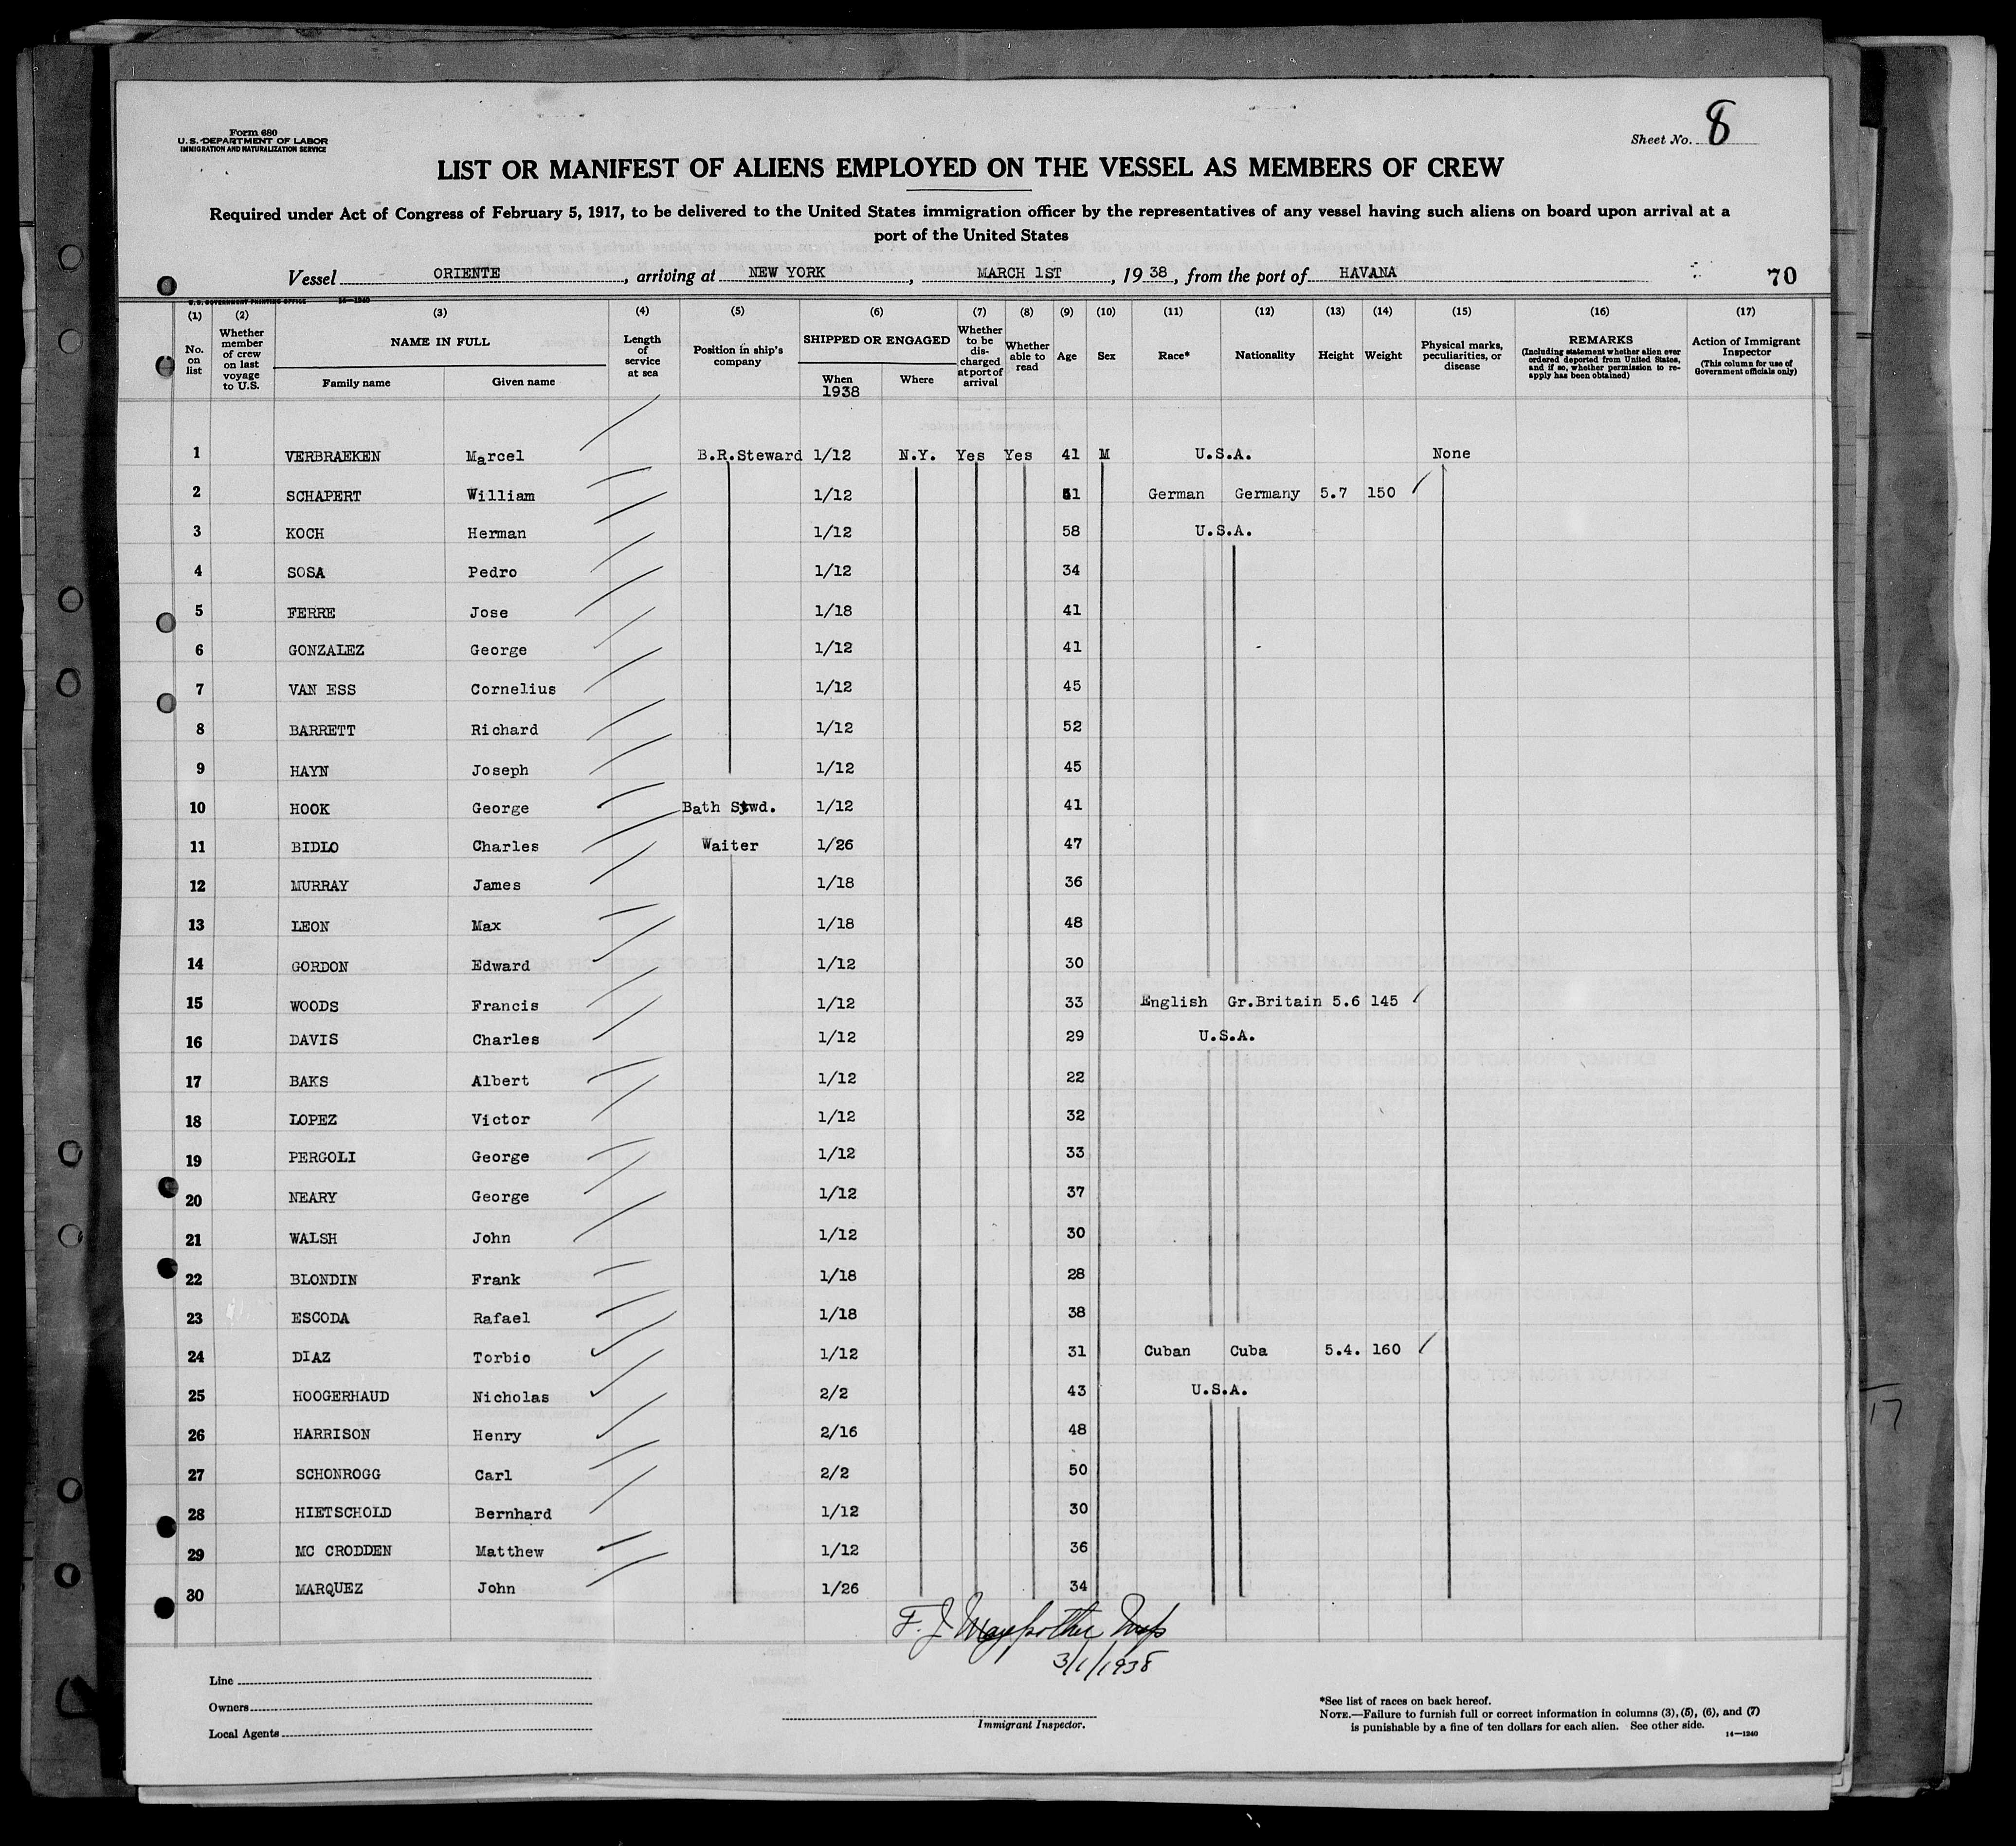 Form 680
U. S. DEPARTMENT OF LABOR
IMMIGRATION AND NATURALIZATION SERVICE
Sheet No. 8
LIST OR MANIFEST OF ALIENS EMPLOYED ON THE VESSEL AS MEMBERS OF CREW
Required under Act of Congress of February 5, 1917, to be delivered to the United States immigration officer by the representatives of any vessel having such aliens on board upon arrival at a
port of the United States
Vessel ORIENTE, arriving at NEW YORK, MARCH 1ST, 1938, from the port of HAVANA 70
U.S. GOVERNMENT PRINTING OFFICE 14—1240
(1) (2) (3) (4) (5) (6) (7) (8) (9) (10) (11) (12) (13) (14) (15) (16) (17)
No. on list
Whether member of crew on last voyage to U.S.
NAME IN FULL
Family name Given name
Length of service at sea
Position in ship's company
SHIPPED OR ENGAGED
When Where
1938
Whether to be discharged at port of arrival
Whether able to read
Age
Sex
Race*
Nationality
Height
Weight
Physical marks, peculiarities, or disease
REMARKS
(Including statement whether alien ever ordered deported from United States, and if so, whether permission to re-apply has been obtained)
Action of Immigrant Inspector
(This column for use of Government officials only)
1 VERBRAEKEN Marcel B.R.Steward 1/12 N.Y. Yes Yes 41 M U.S.A. None
2 SCHAPERT William 1/12 51 German Germany 5.7 150 ✓
3 KOCH Herman 1/12 58 U.S.A.
4 SOSA Pedro 1/12 34
5 FERRE Jose 1/18 41
6 GONZALEZ George 1/12 41
7 VAN ESS Cornelius 1/12 45
8 BARRETT Richard 1/12 52
9 HAYN Joseph 1/12 45
10 HOOK George Bath Stwd. 1/12 41
11 BIDLO Charles Waiter 1/26 47
12 MURRAY James 1/18 36
13 LEON Max 1/18 48
14 GORDON Edward 1/12 30
15 WOODS Francis 1/12 33 English Gr.Britain 5.6 145 ✓
16 DAVIS Charles 1/12 29 U.S.A.
17 BAKS Albert 1/12 22
18 LOPEZ Victor 1/12 32
19 PERGOLI George 1/12 33
20 NEARY George 1/12 37
21 WALSH John 1/12 30
22 BLONDIN Frank 1/18 28
23 ESCODA Rafael 1/18 38
24 DIAZ Torbio 1/12 31 Cuban Cuba 5.4. 160 ✓
25 HOOGERHAUD Nicholas 2/2 43 U.S.A.
26 HARRISON Henry 2/16 48
27 SCHONROGG Carl 2/2 50
28 HIETSCHOLD Bernhard 1/12 30
29 MC CRODDEN Matthew 1/12 36
30 MARQUEZ John 1/26 34
F. J.
3/1/1938
Line
Owners
Local Agents
Immigrant Inspector.
*See list of races on back hereof.
NOTE.—Failure to furnish full or correct information in columns (3), (5), (6), and (7)
is punishable by a fine of ten dollars for each alien. See other side.
14—1240
17